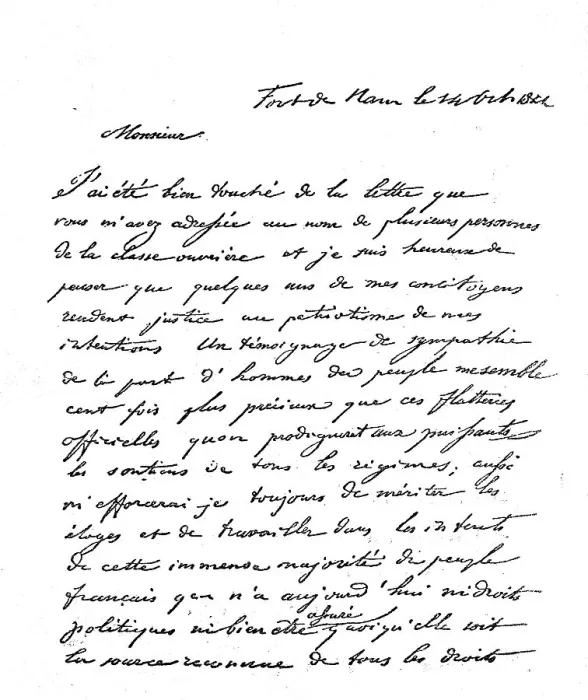 Fort de Ham le 14 Oct 1844
Monsieur
J'ai été bien touché de la lettre que
vous m'avez adressée au nom de plusieurs personnes
de la classe ouvrière et je suis heureux de
penser que quelques uns de mes concitoyens
rendent justice au patriotisme de mes
intentions Un témoignage de sympathie
de la part d'hommes du peuple me semble
cent fois plus précieux que ces flatteries
officielles que prodiguent aux puissants
les soutiens de tous les régimes; aussi
m'efforcerai je toujours de mériter les
éloges et de travailler dans les intérêts
de cette immense majorité du peuple
français qui n'a aujourd'hui ni droits
politiques ni bien être assuré quoiqu'elle soit
la source reconnue de tous les droits